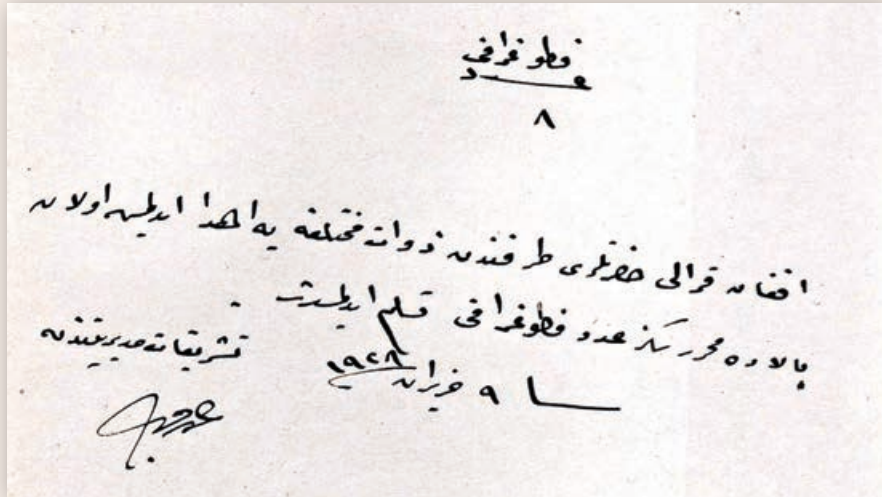 فطوغرافی
عدد
٨
افغان قرالی حضرتلری طرفندن ذوات مختلفه یه اهدا ایدلمش اولان
بالاده محرر سكز عدد فطوغرافی تسلم ایدلمشدر
٩ حزیران ١٩٢٨
تشریفات مدیریتندن